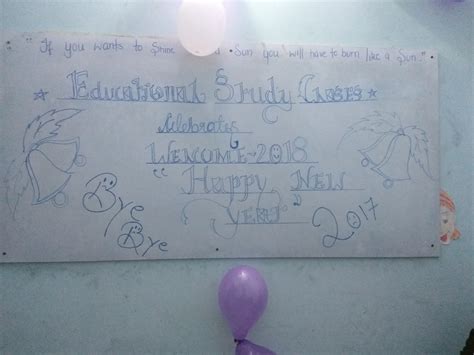 "If you wants to Shine Sun You will have to burn like a Sun."
Educational Study Cases
Celebrates
Welcome-2018
"Happy New
Year"
Bye
Bye
2017